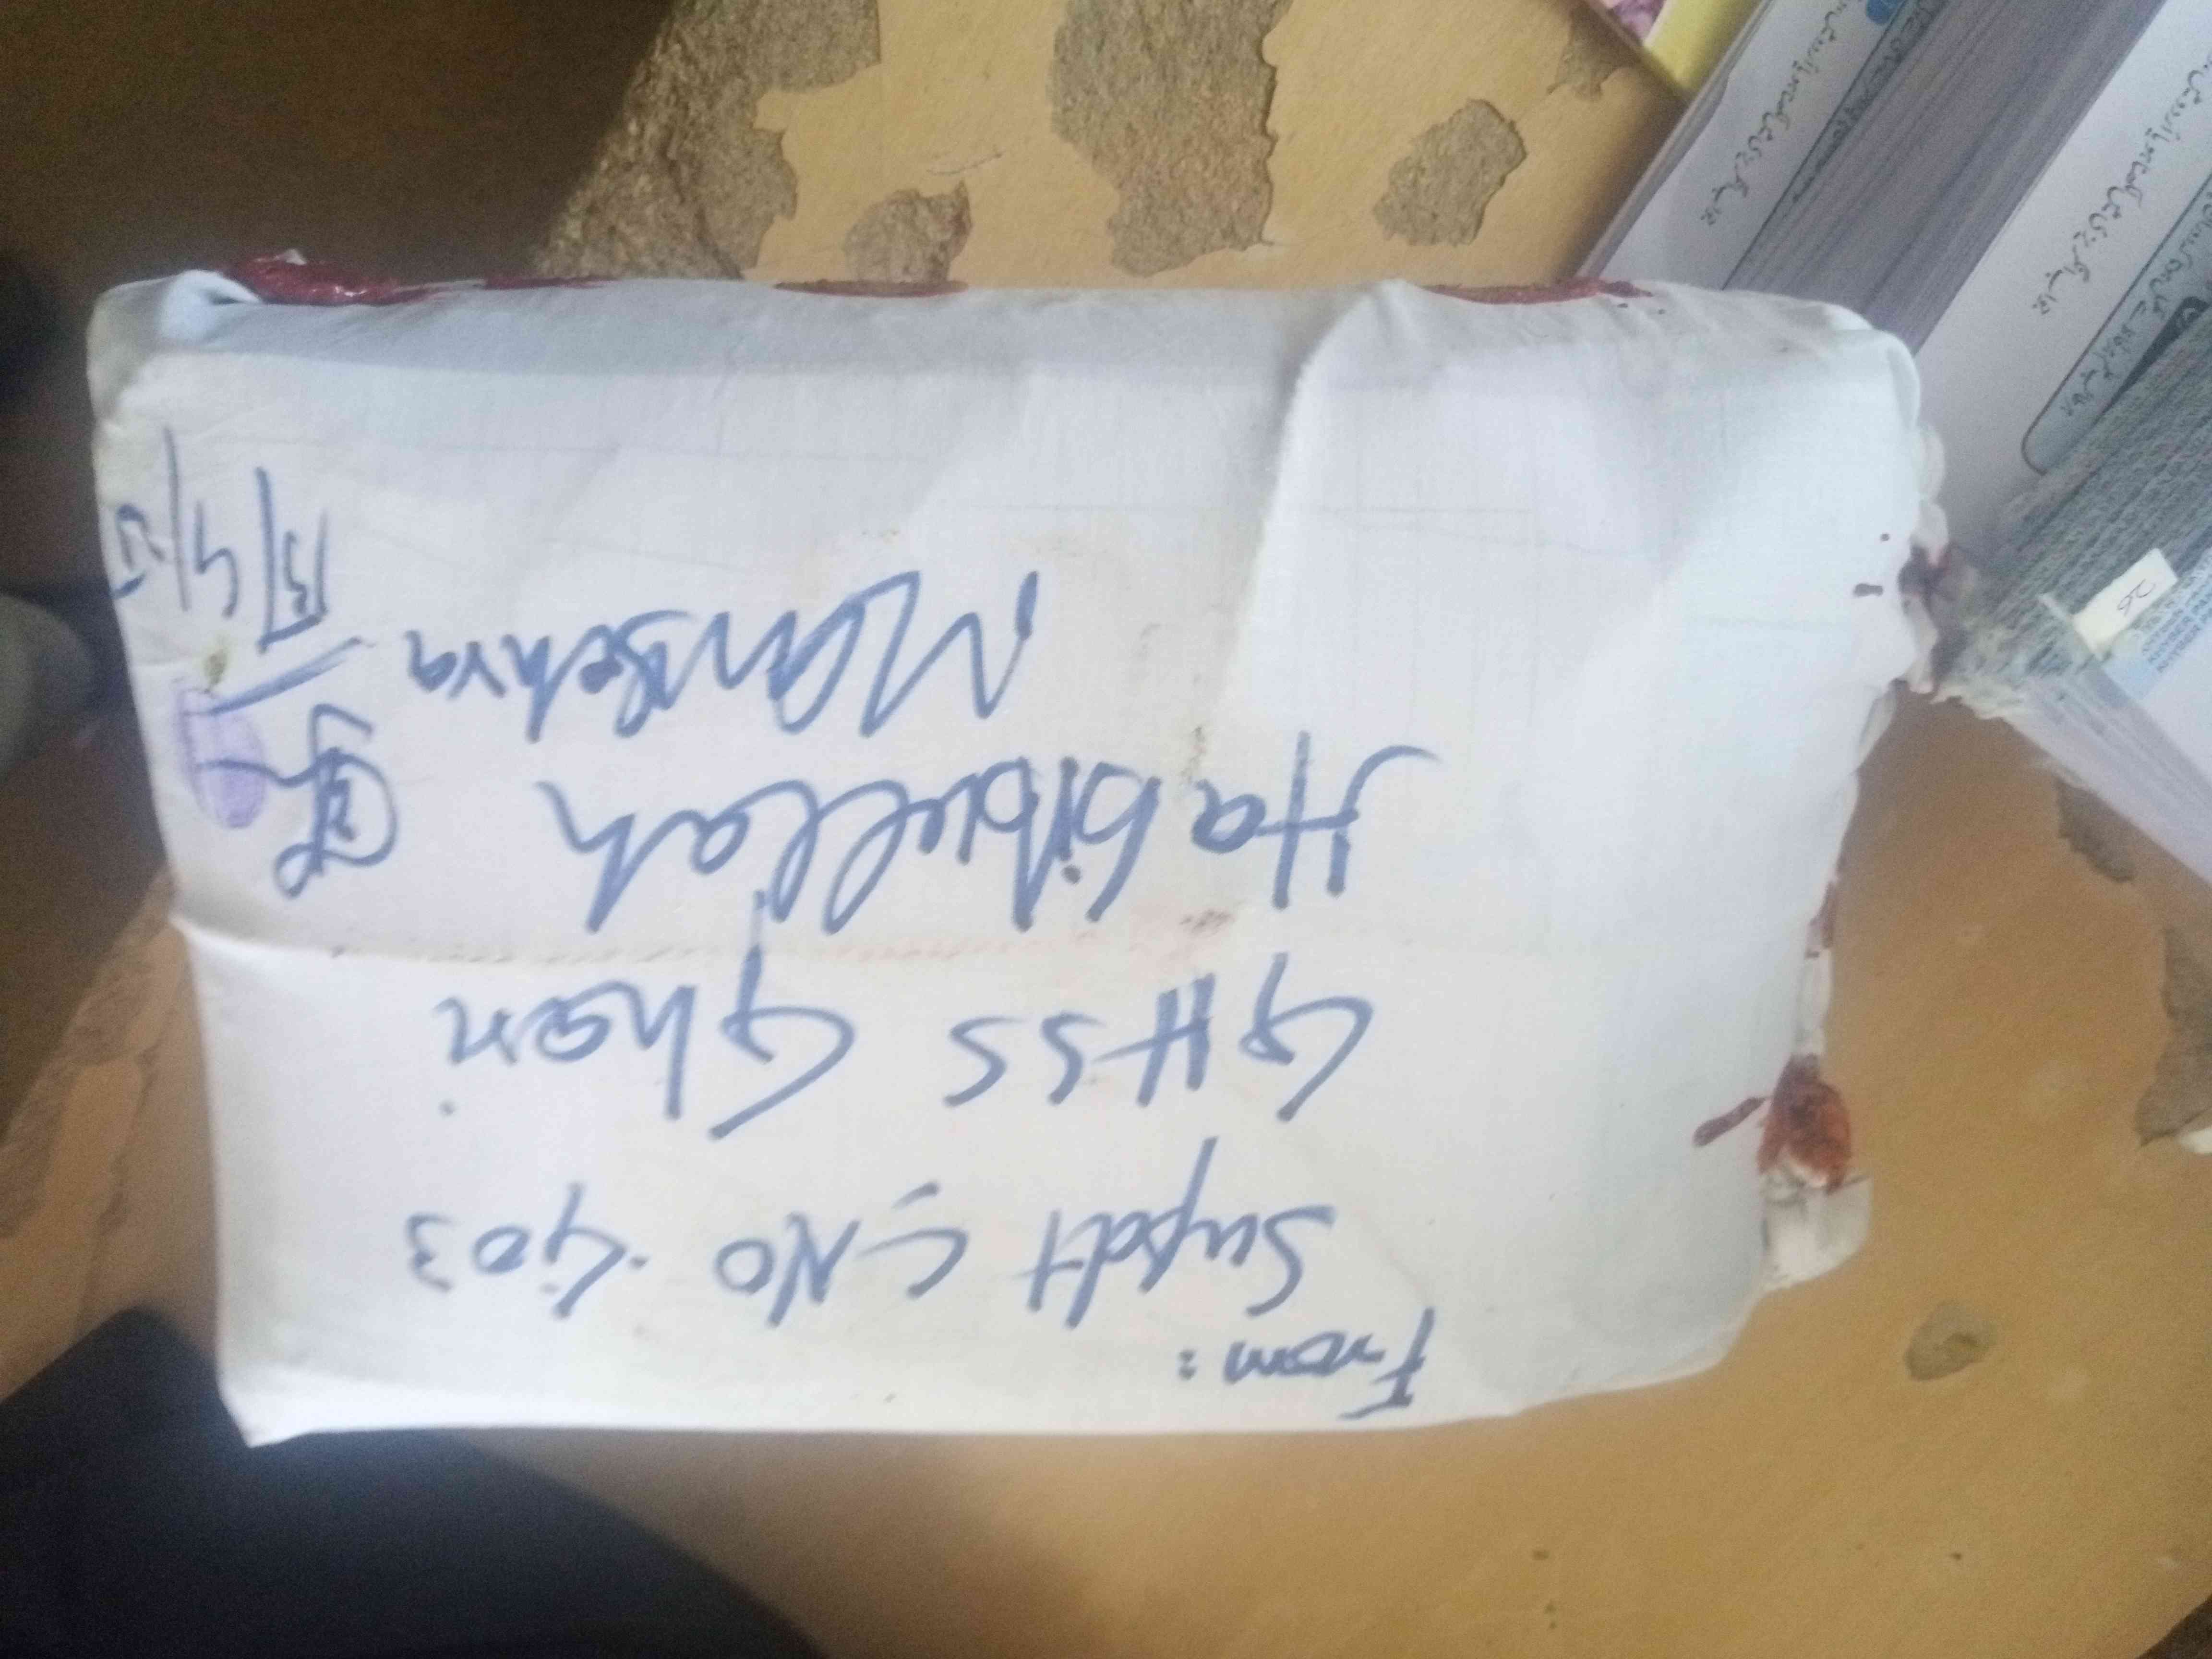 From:
Supdt C,No 903
GHSS Ghari
Habibullah
Mansehra
15/4/25
26